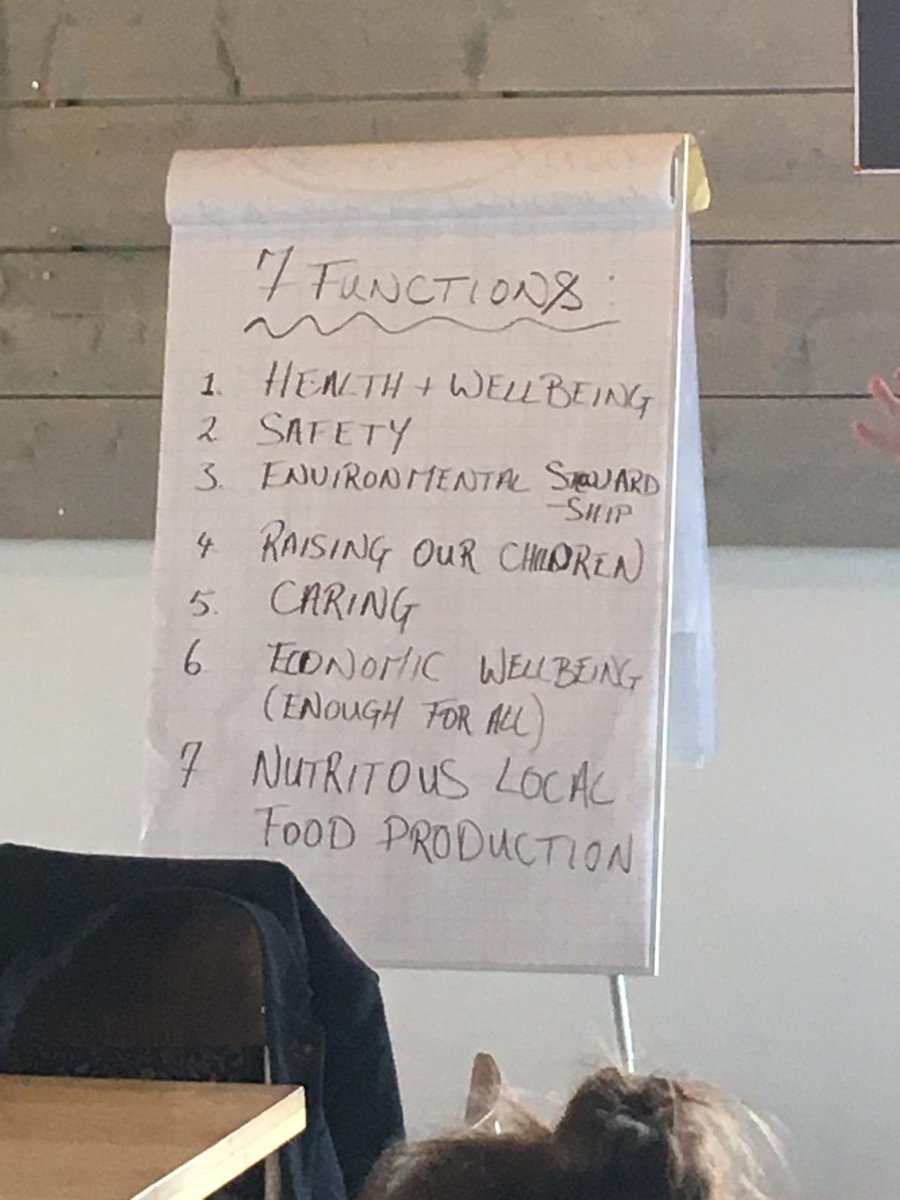 7 FUNCTIONS:
1. HEALTH + WELLBEING
2 SAFETY
3. ENVIRONMENTAL STEWARD
-SHIP
4 RAISING OUR CHILDREN
5. CARING
6 ECONOMIC WELLBEING
(ENOUGH FOR ALL)
7 NUTRITOUS LOCAL
FOOD PRODUCTION